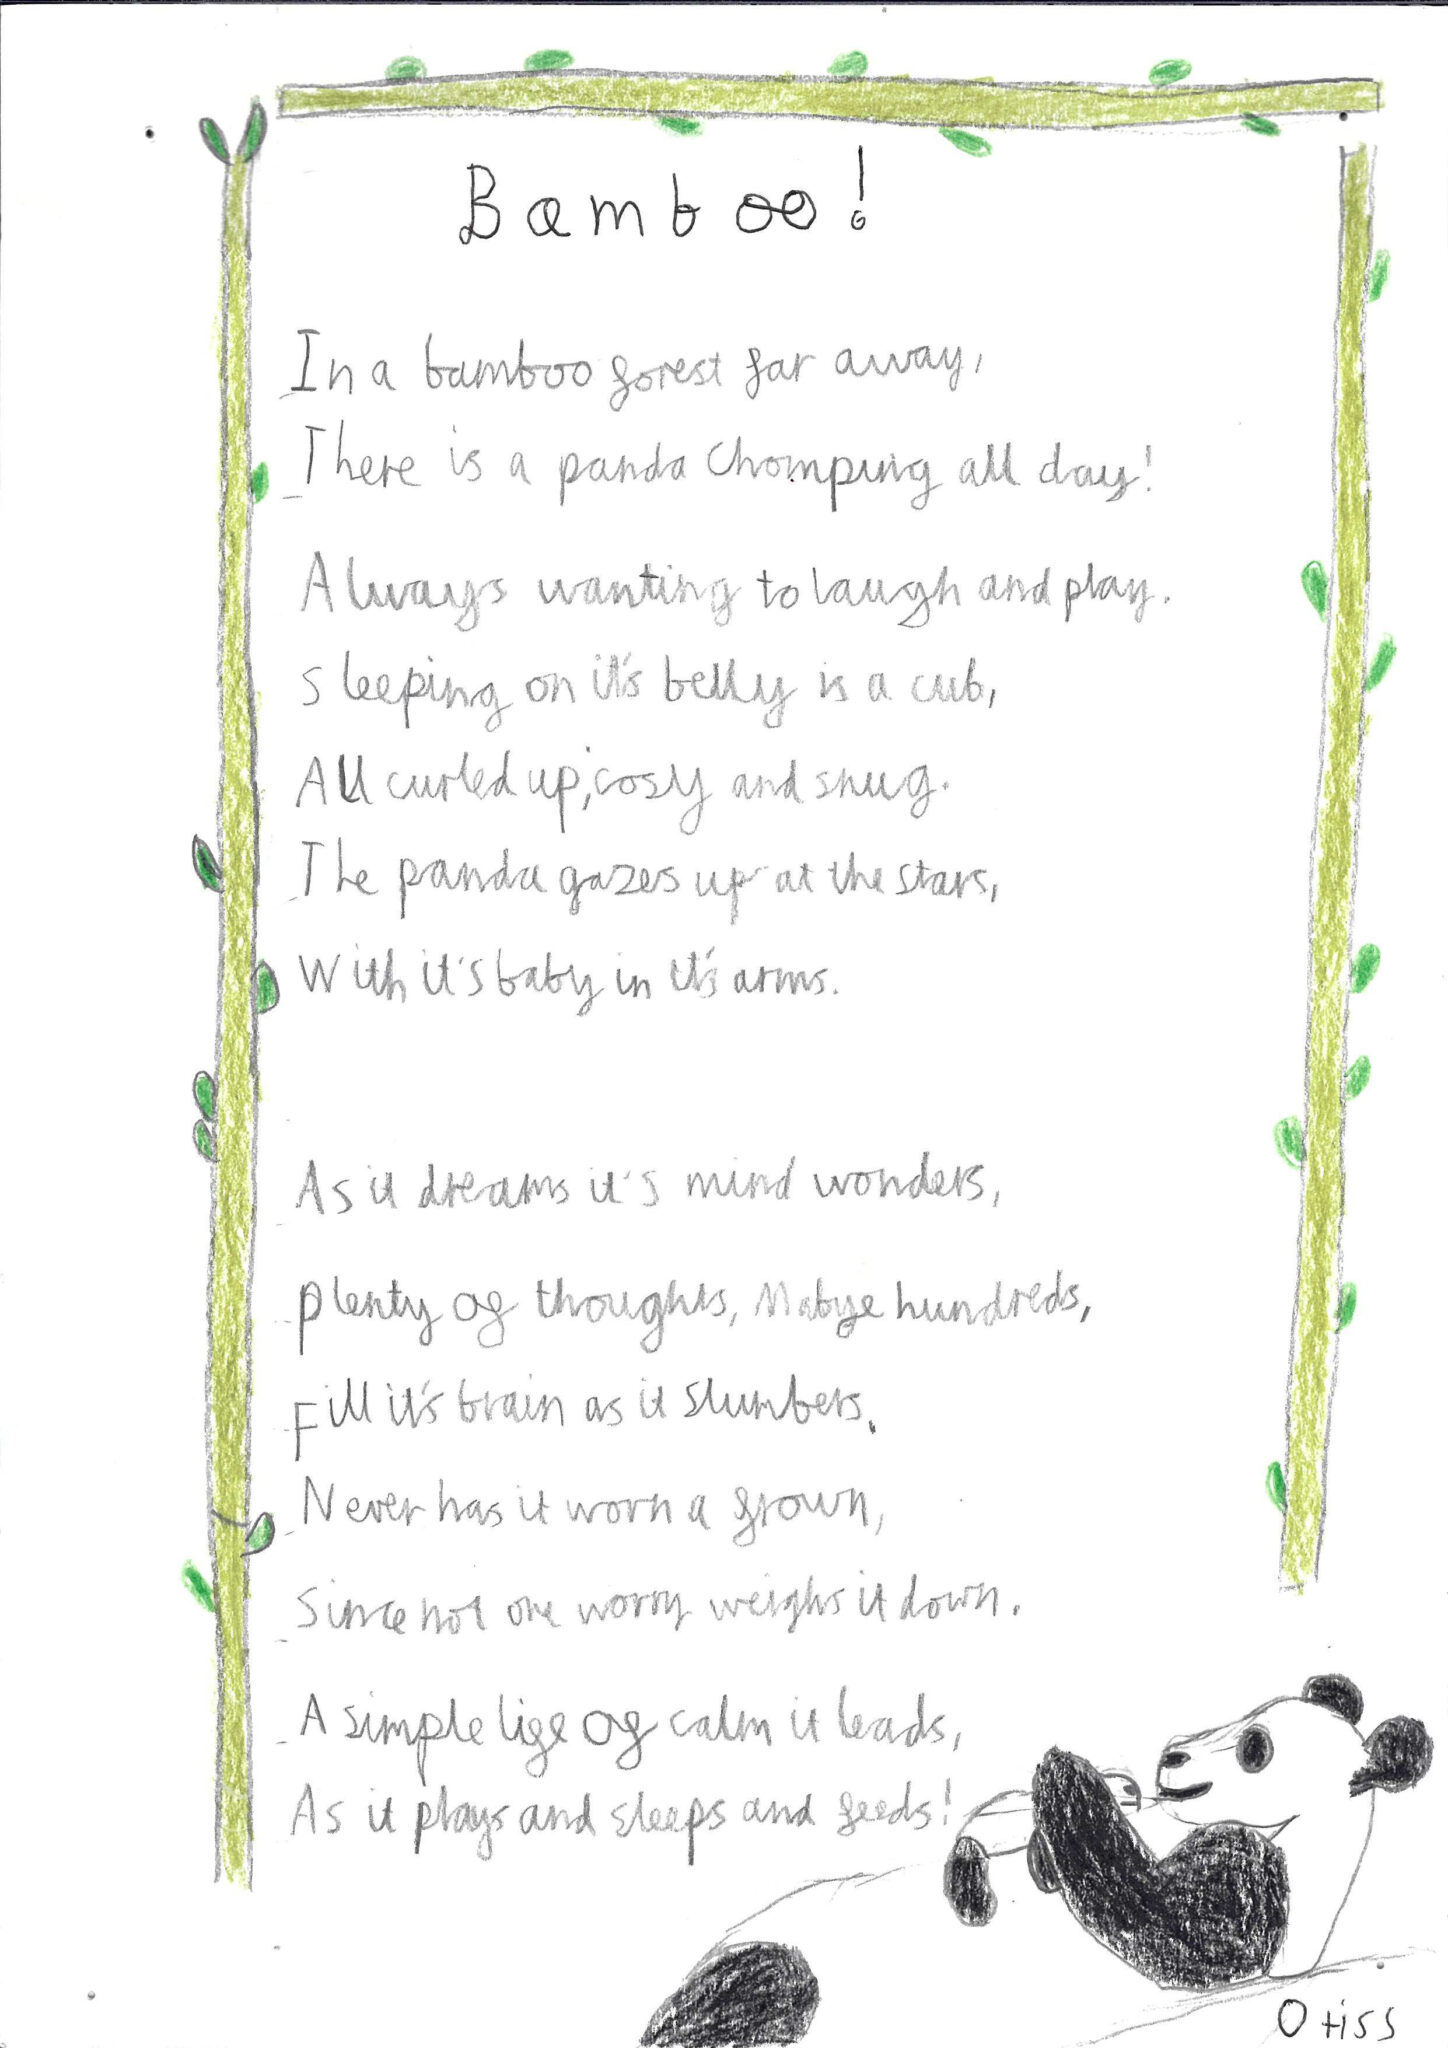 Bamboo!
In a bamboo forest far away,
There is a panda chomping all day!
Always wanting to laugh and play.
Sleeping on it's belly is a cub,
All curled up, cosy and snug.
The panda gazes up at the stars,
With it's baby in it's arms.
As it dreams it's mind wonders,
Plenty of thoughts, Mabye hundreds,
Fill it's brain as it slumbers.
Never has it worn a frown,
Since not one worry weighs it down.
A simple life of calm it leads,
As it plays and sleeps and feeds!
Otis S